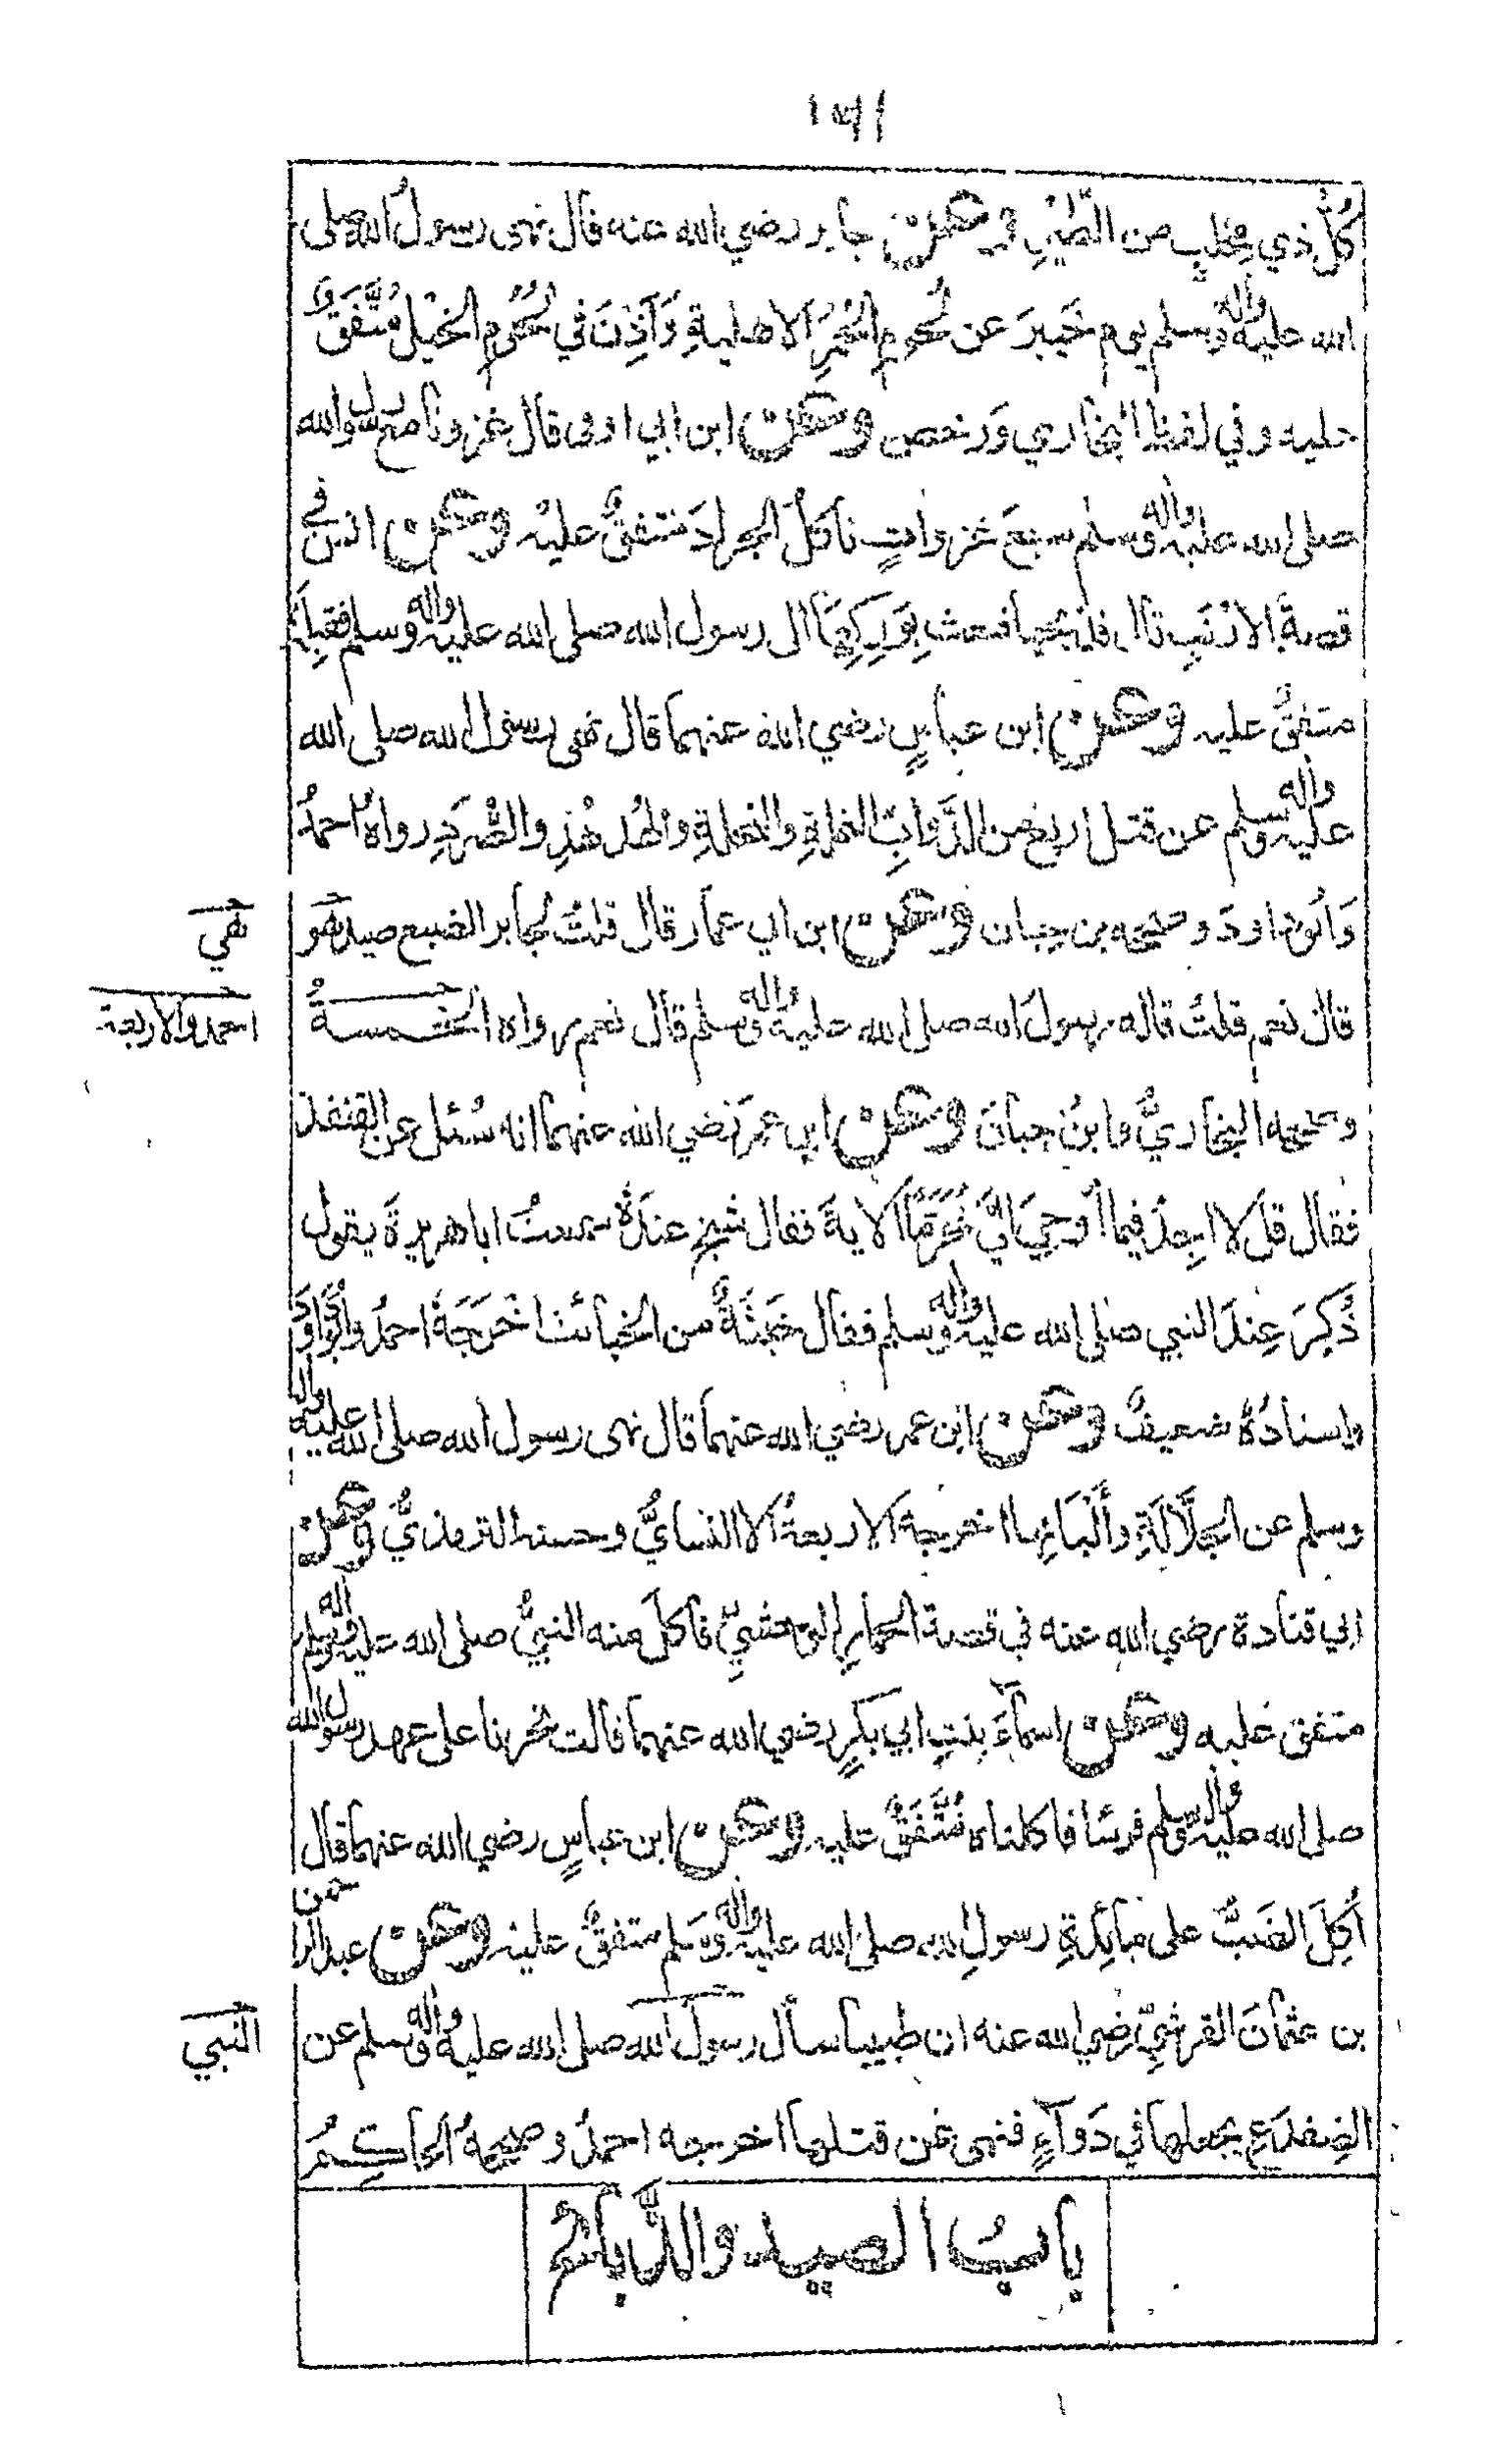 ١٥١
كُلُّ ذي مِخْلَبٍ من الطَّيْرِ وعن جابر رضي الله عنه قال نهى رسولُ الله صلى
الله عليه واله وسلم يوم خَيبرَ عن لُحُومِ الحُمُرِ الاهليةِ وَاَذِنَ في لُحُوْمِ الخَيْلِ مُتَّفَقٌ
عليه وفي لفظ البخاري وَرَخص وعن ابن ابي اوفى قال غزونا مع رسول الله
صلى الله عليه واله وسلم سبعَ غزواتٍ ناكلُ الجرادَ متفقٌ عليْه وعن انس في
قصةِ الارْنَبِ قال فذبحها فبعث بِوَرِكِهَا الى رسول الله صلى الله عليه واله وسلم فقبِلَهُ
متفقٌ عليه وعن ابن عباسٍ رضي الله عنهما قال نهى رسول الله صلى الله
عليه واله وسلم عن قتل اربعٍ من الدَّوابِّ النملةِ والنحلةِ والهُدْهُدِ والصُّرَدِ رواهُ احمدُ
وَابُوداودَ وصححه بن حبان وعن ابن ابي عمار قال قلتُ لجابر الضبع صيد هو
هي
قال نعم قلتُ قاله رسولُ الله صلى الله عليه واله وسلم قال نعم رواه الخمسةُ
احمد والاربعة
وصححه البخاريُّ وابنُ حبانَ وعن ابن عمرَ رضي الله عنهما انه سُئل عن القنفذ
فقال قل لا اجِدُ فيما اُوْحِيَ اِلَيَّ مُحَرَّمًا الايةَ فقال شيخ عندَهُ سمعتُ اباهريرةَ يقول
ذُكِرَ عِندَ النبي صلى الله عليه واله وسلم فقال خَبثَةٌ من الخبائث اخْرَجَهُ احمدُ وابُوداودَ
واسنادُهُ ضعيفٌ وعن ابن عمر رضي الله عنهما قال نهى رسول الله صلى الله عليه واله
وسلم عن الجلَّالَةِ وأَلْبَانِها اخرجه الاربعةُ الا النسايُّ وحسنه الترمذيُّ وعن
ابي قتادة رضي الله عنه في قصة الحمارِ الوحشيِّ فأكلَ منه النبيُّ صلى الله عليه واله وسلم
متفق عليه وعن اسماءَ بنتِ ابي بكرٍ رضي الله عنهما قالت نحرنا على عهد رسول الله
صلى الله عليه واله وسلم فرسًا فاكلناه مُتَّفَقٌ عليه وعن ابن عباسٍ رضي الله عنهما قال
اُكِلَ الضَبُّ على مائِدةِ رسولِ الله صلى الله عليه واله وسلم متفقٌ عليه وعن عبد الرحمن
بن عثمانَ القرشيِّ رضي الله عنه ان طبيبا سأل رسولَ الله صلى الله عليه واله وسلم عن
النبي
الضِفدَعِ يجعلها في دَوآءٍ فنهى عَن قتلها اخرجه احمدُ وصححهُ الحاكِمُ
بابُ الصيد والذَّبائح